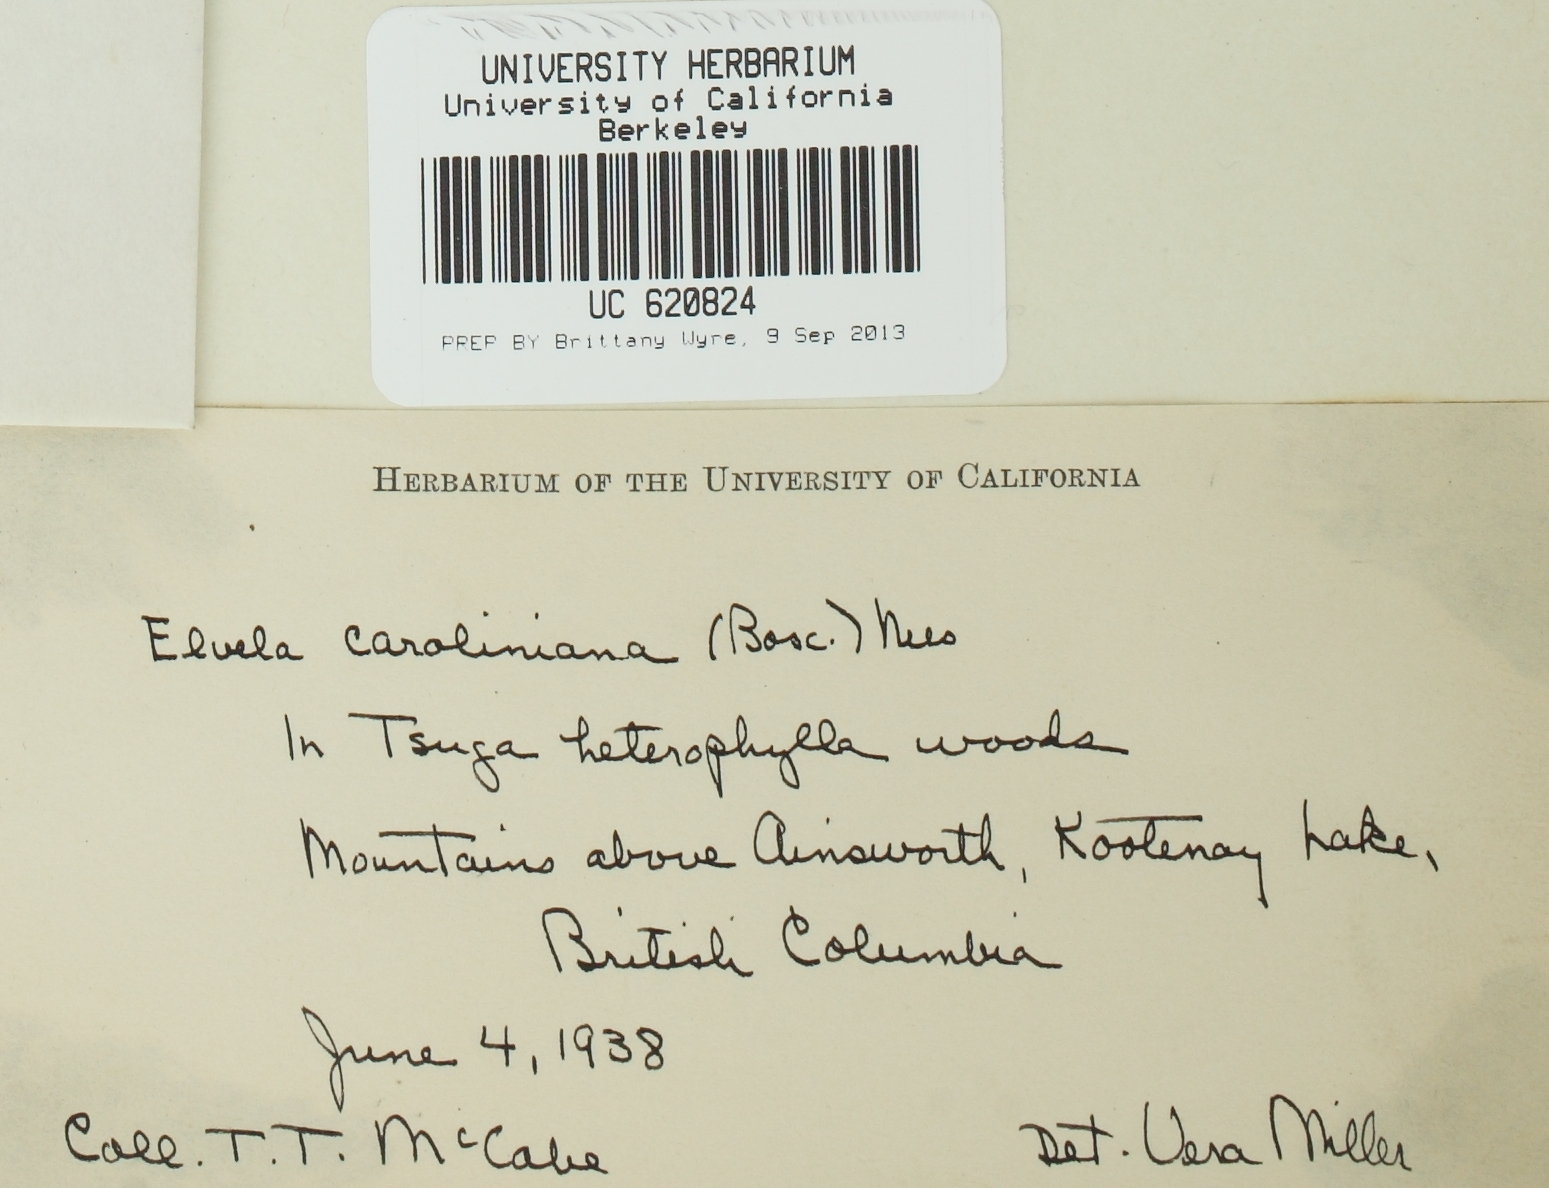 UNIVERSITY HERBARIUM
University of California
Berkeley
UC 620824
PREP BY Brittany Wyre, 9 Sep 2013
HERBARIUM OF THE UNIVERSITY OF CALIFORNIA
Elvela caroliniana (Bosc.) Nees
In Tsuga heterophylla woods
Mountains above Ainsworth, Kootenay Lake,
British Columbia
June 4, 1938
Coll. T. T. McCabe
Det. Vera Miller